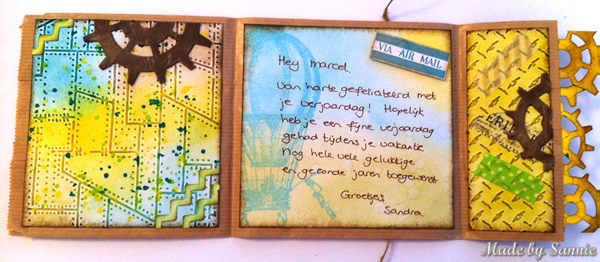 VIA AIR MAIL
Hey marcel,
van harte gefeliciteerd met
je verjaardag! Hopelijk
heb je een fijne verjaardag
gehad tijdens je vakantie
Nog hele vele gelukkige
en gezonde jaren toegewenst
Groetjes
Sandra
Made by Sannie